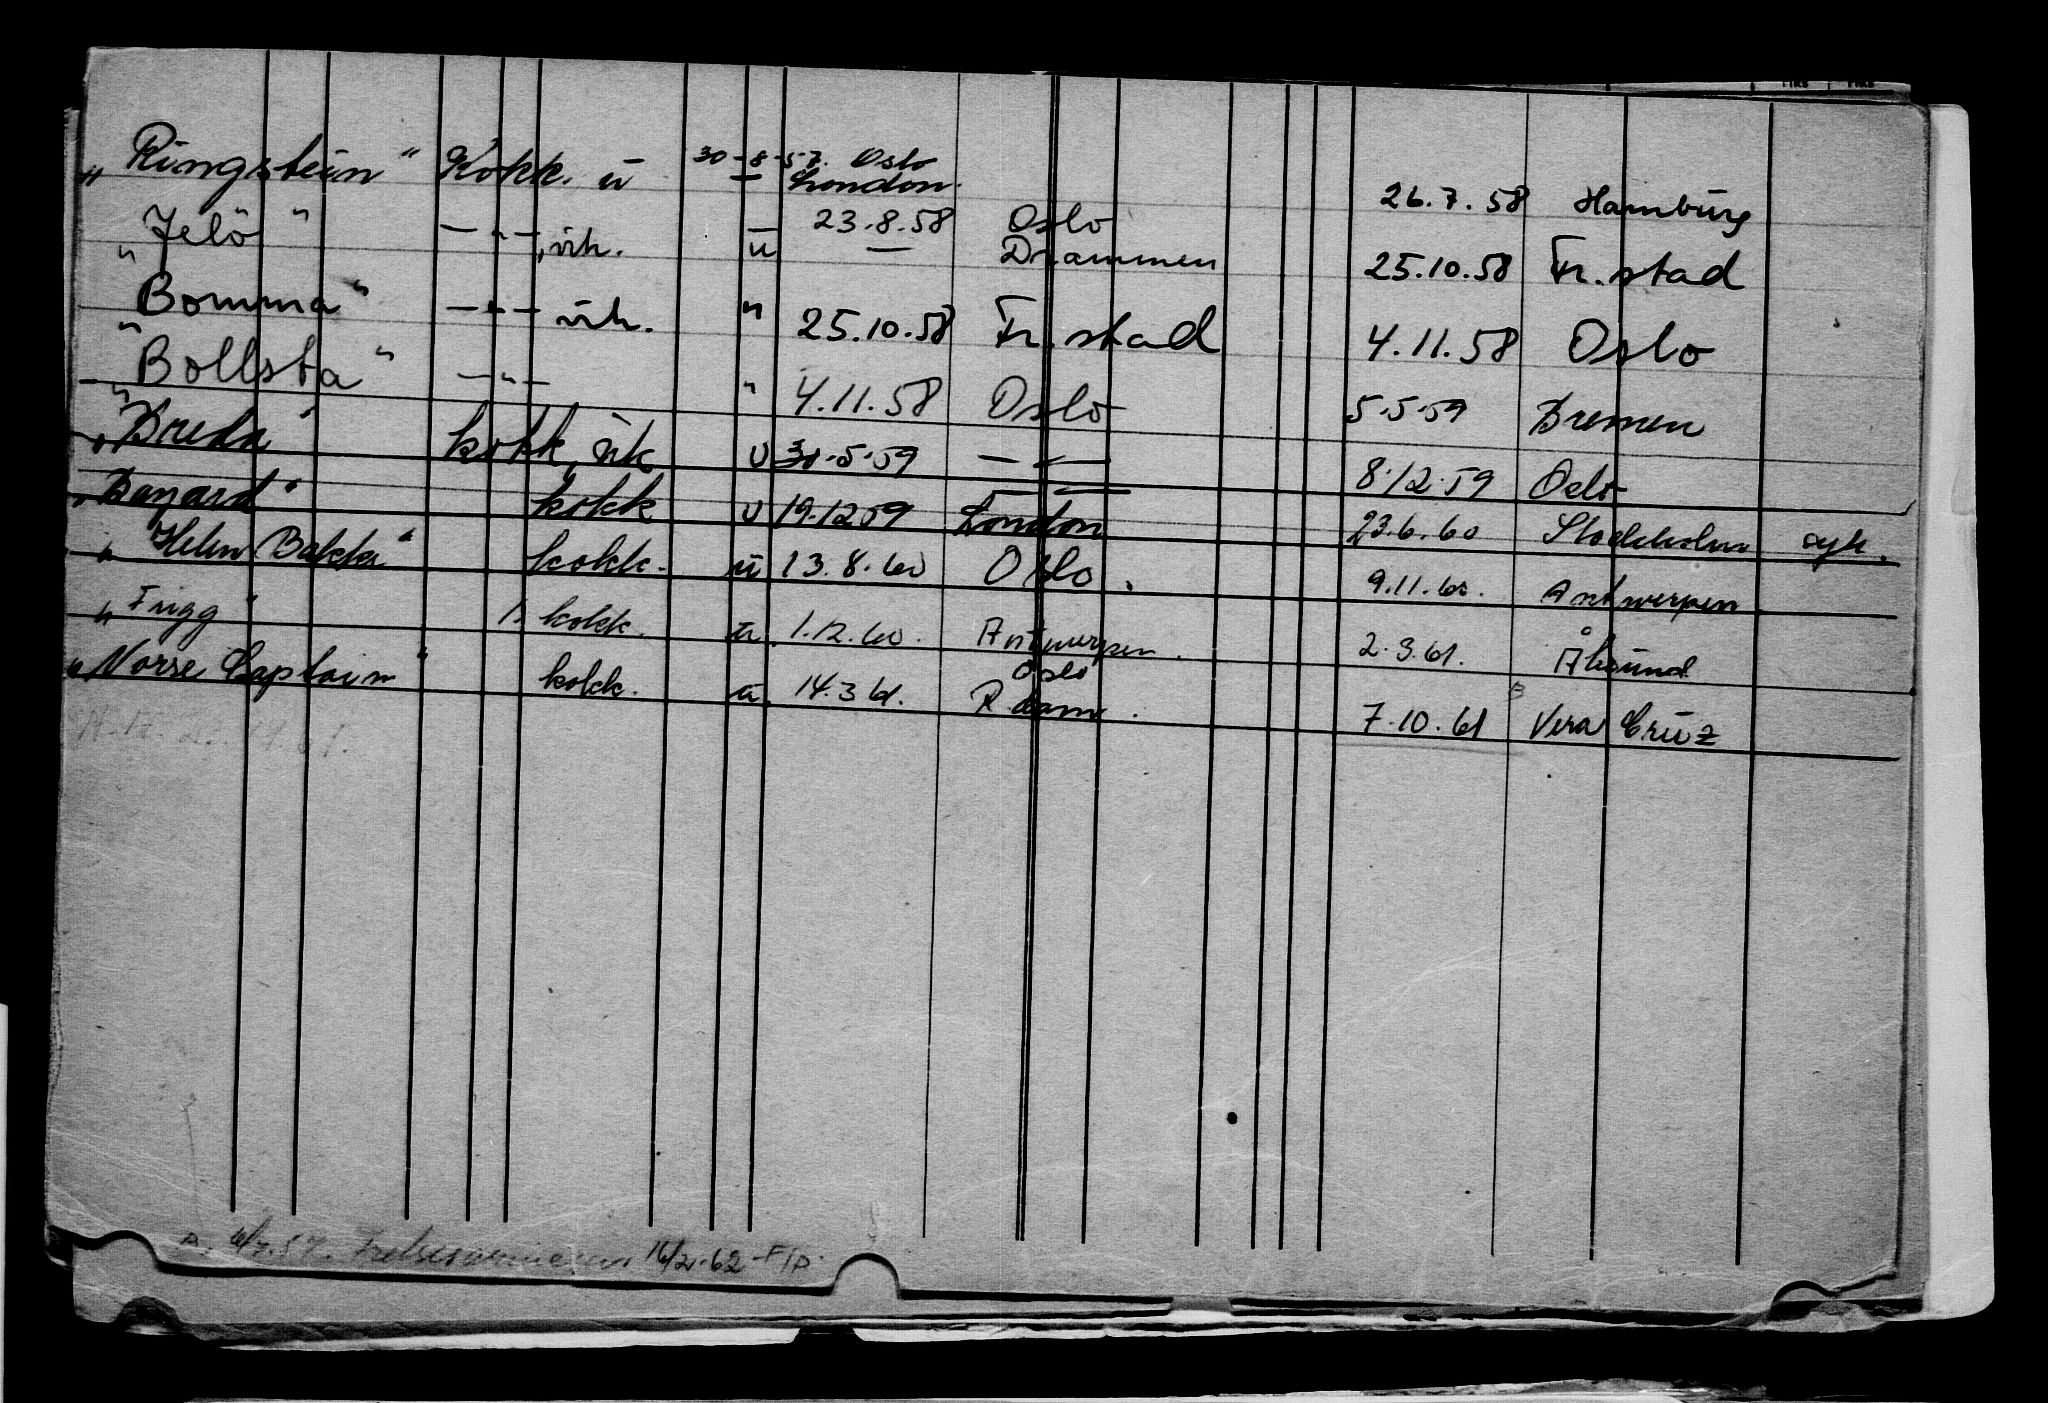 „Ringstein" Kokk. u 30-8-57. Oslo 26.7.58 Hamburg
— London.
„Jelö" —"—, vik. — 23.8.58 Oslo
u — Drammen 25.10.58 Fr.stad
„Bomma" —"— vik. " 25.10.58 Fr.stad 4.11.58 Oslo
„Bollsta" —"— " 4.11.58 Oslo 5.5.59 Bremen
„Breda" kokk, vik u 30.5.59 —"— 8.12.59 Oslo
„Bayard" kokk u 19.12.59 London 23.6.60 Stockholm syk.
„Helen Bakke" kokk. u 13.8.60 Oslo. 9.11.60. Antwerpen
„Frigg" 1. kokk. u. 1.12.60. Antwerpen. 2.3.61. Ålesund
„Norse Captain" kokk. u. 14.3.61. Oslo
R.dam. 7.10.61 Vera Cruz
16/2-62